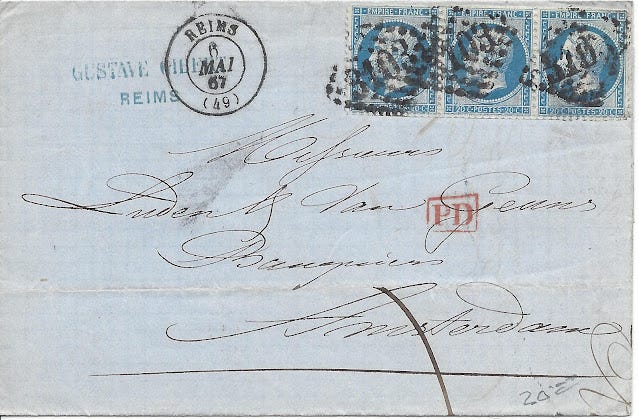 EMPIRE FRANC EMPIRE FRANC EMPIRE FRANC
20 C POSTES 20 C 20 C POSTES 20 C 20 C POSTES 20 C
3103 3103 3103
REIMS
6
MAI
67
(49)
GUSTAVE
REIMS
Messieurs
Luden & Van Geuns
PD
Banquiers
Amsterdam